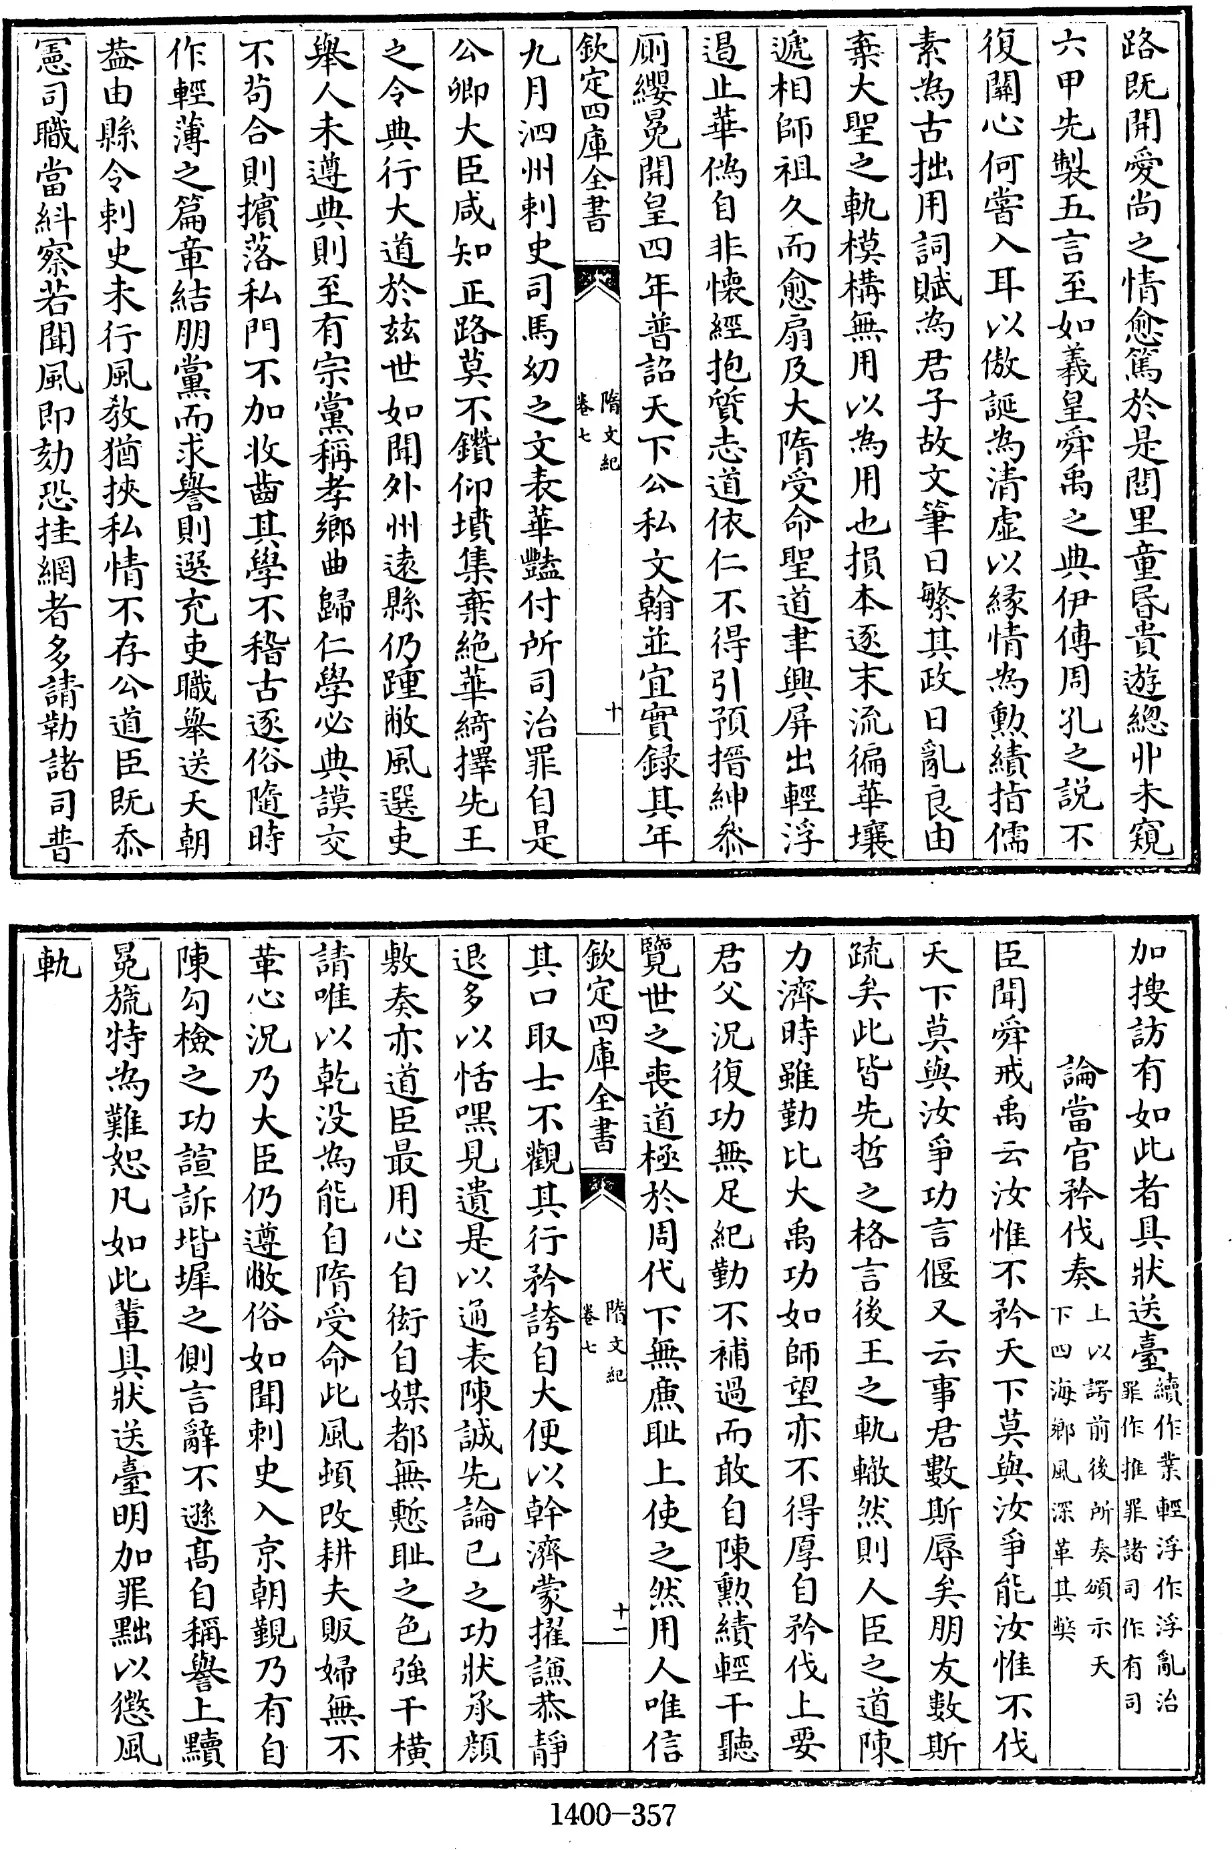 路既開愛尚之情愈篤於是閭里童昬貴遊總丱未窺
六甲先製五言至如羲皇舜禹之典伊傅周孔之説不
復關心何嘗入耳以傲誕為清虚以縁情為勲績指儒
素為古拙用詞賦為君子故文筆日繁其政日亂良由
棄大聖之軌模構無用以為用也損本逐末流徧華壤
遞相師祖久而愈扇及大隋受命聖道聿興屏出輕浮
遏止華偽自非懷經抱質志道依仁不得引預搢紳叅
厠纓冕開皇四年普詔天下公私文翰並宜實録其年
欽定四庫全書
隋文紀
卷七
十
九月泗州刺史司馬幼之文表華豔付所司治罪自是
公卿大臣咸知正路莫不鑽仰墳集棄絶華綺擇先王
之令典行大道於兹世如聞外州遠縣仍踵敝風選吏
舉人未遵典則至有宗黨稱孝鄉曲歸仁學必典謨交
不茍合則擯落私門不加收齒其學不稽古逐俗隨時
作輕薄之篇章結朋黨而求譽則選充吏職舉送天朝
葢由縣令刺史未行風敎猶挾私情不存公道臣既忝
憲司職當糾察若聞風即劾恐挂網者多請勒諸司普
加搜訪有如此者具狀送臺續作業輕浮作浮亂治
罪作推罪諸司作有司
論當官矜伐奏上以諤前後所奏頒示天
下四海鄉風深革其獘
臣聞舜戒禹云汝惟不矜天下莫與汝爭能汝惟不伐
天下莫與汝爭功言偃又云事君數斯辱矣朋友數斯
疏矣此皆先哲之格言後王之軌轍然則人臣之道陳
力濟時雖勤比大禹功如師望亦不得厚自矜伐上要
君父況復功無足紀勤不補過而敢自陳勲績輕干聽
覽世之喪道極於周代下無亷恥上使之然用人唯信
欽定四庫全書
隋文紀
卷七
十一
其口取士不觀其行矜誇自大便以幹濟蒙擢謙恭靜
退多以恬嘿見遺是以通表陳誠先論己之功狀承顔
敷奏亦道臣最用心自衒自媒都無慙恥之色強干橫
請唯以乾没為能自隋受命此風頓改耕夫販婦無不
革心況乃大臣仍遵敝俗如聞刺史入京朝覲乃有自
陳勾檢之功諠訴堦墀之側言辭不遜髙自稱譽上黷
冕旒特為難恕凡如此輩具狀送臺明加罪黜以懲風
軌
1400-357